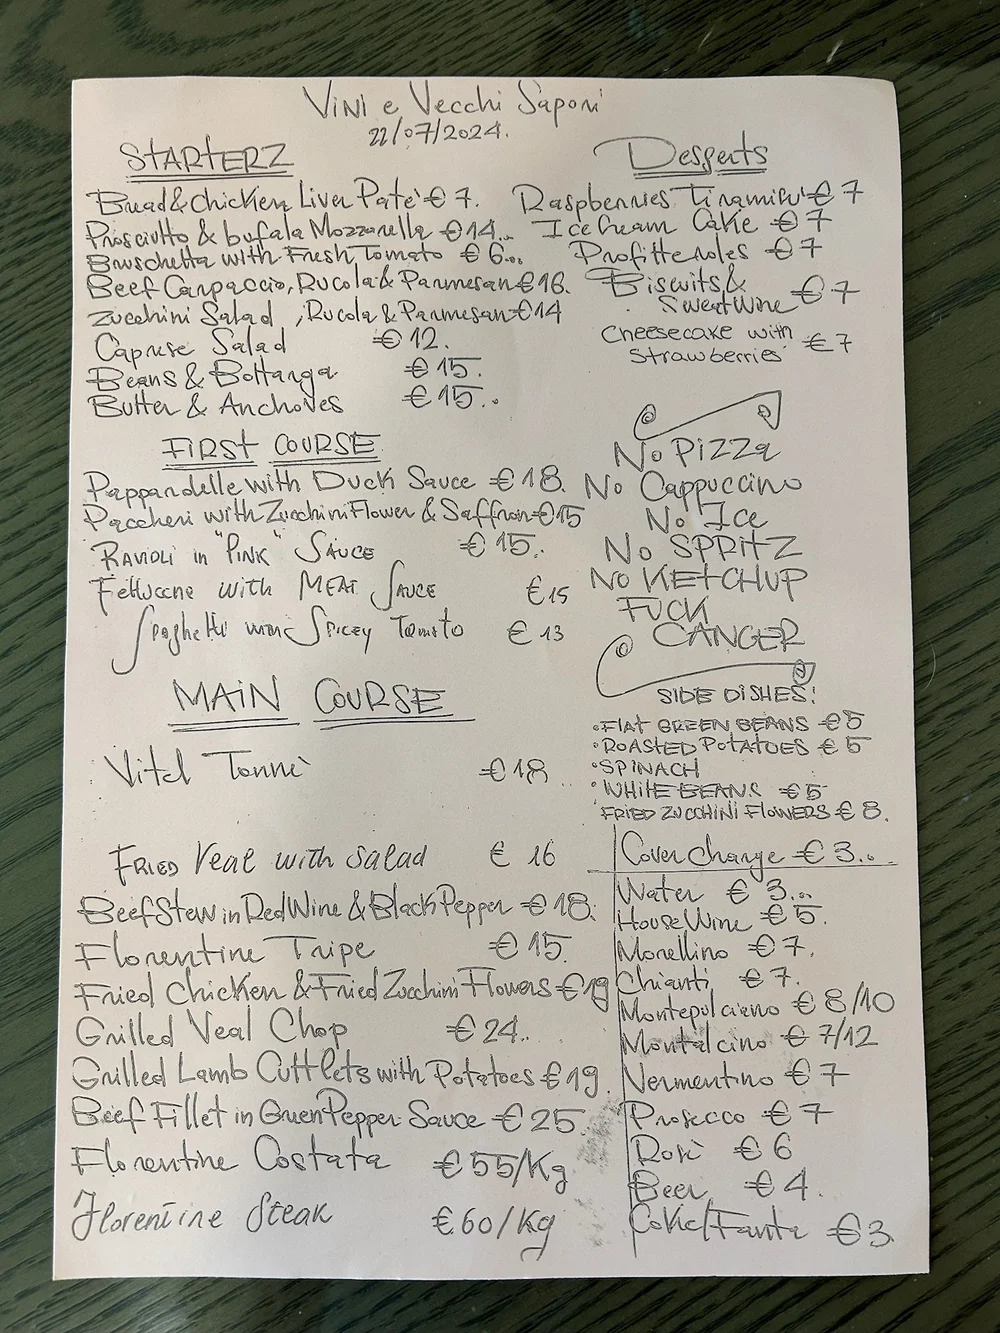 Vini e Vecchi Sapori
22/07/2024.
STARTERZ
Bread & Chicken Liver Patè € 7.
Prosciutto & bufala Mozzarella € 14..
Bruschetta with Fresh Tomato € 6...
Beef Carpaccio, Rucola & Parmesan € 16.
Zucchini Salad, Rucola & Parmesan € 14
Caprese Salad € 12.
Beans & Bottarga € 15.
Butter & Anchoves € 15..
FIRST COURSE
Pappardelle with Duck Sauce € 18.
Paccheri with Zucchini Flower & Saffron € 15
RAVIOLI in "PINK" SAUCE € 15..
Fettuccine with MEAT SAUCE € 15
Spaghetti with Spicey Tomato € 13
MAIN COURSE
Vitel Tonnè € 18
FRIED Veal with salad € 16
Beef Stew in Red Wine & Black Pepper € 18.
Florentine Tripe € 15.
Fried Chicken & Fried Zucchini Flowers € 19
Grilled Veal Chop € 24..
Grilled Lamb Cuttlets with Potatoes € 19.
Beef Fillet in Green Pepper Sauce € 25
Florentine Costata € 55/Kg
Florentine Steak € 60/Kg
Desserts
Raspberries Tiramisù € 7
Ice Cream Cake € 7
Profitteroles € 7
Biscuits &
Sweet Wine € 7
Cheesecake with
Strawberries € 7
No PIZZA
No Cappuccino
No Ice
No SPRITZ
NO KETCHUP
FUCK
CANCER
SIDE DISHES!
• FLAT GREEN BEANS € 5
• ROASTED POTATOES € 5
• SPINACH
• WHITE BEANS € 5
FRIED ZUCCHINI FLOWERS € 8.
Cover Charge € 3..
Water € 3...
House Wine € 5.
Morellino € 7.
Chianti € 7.
Montepulciano € 8/10
Montalcino € 7/12
Vermentino € 7
Prosecco € 7
Rosè € 6
Beer € 4.
Coke/Fanta € 3.